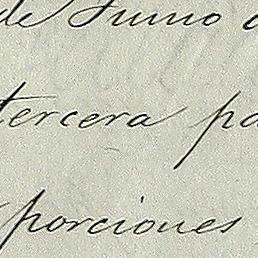 de Junio
tercera
porciones